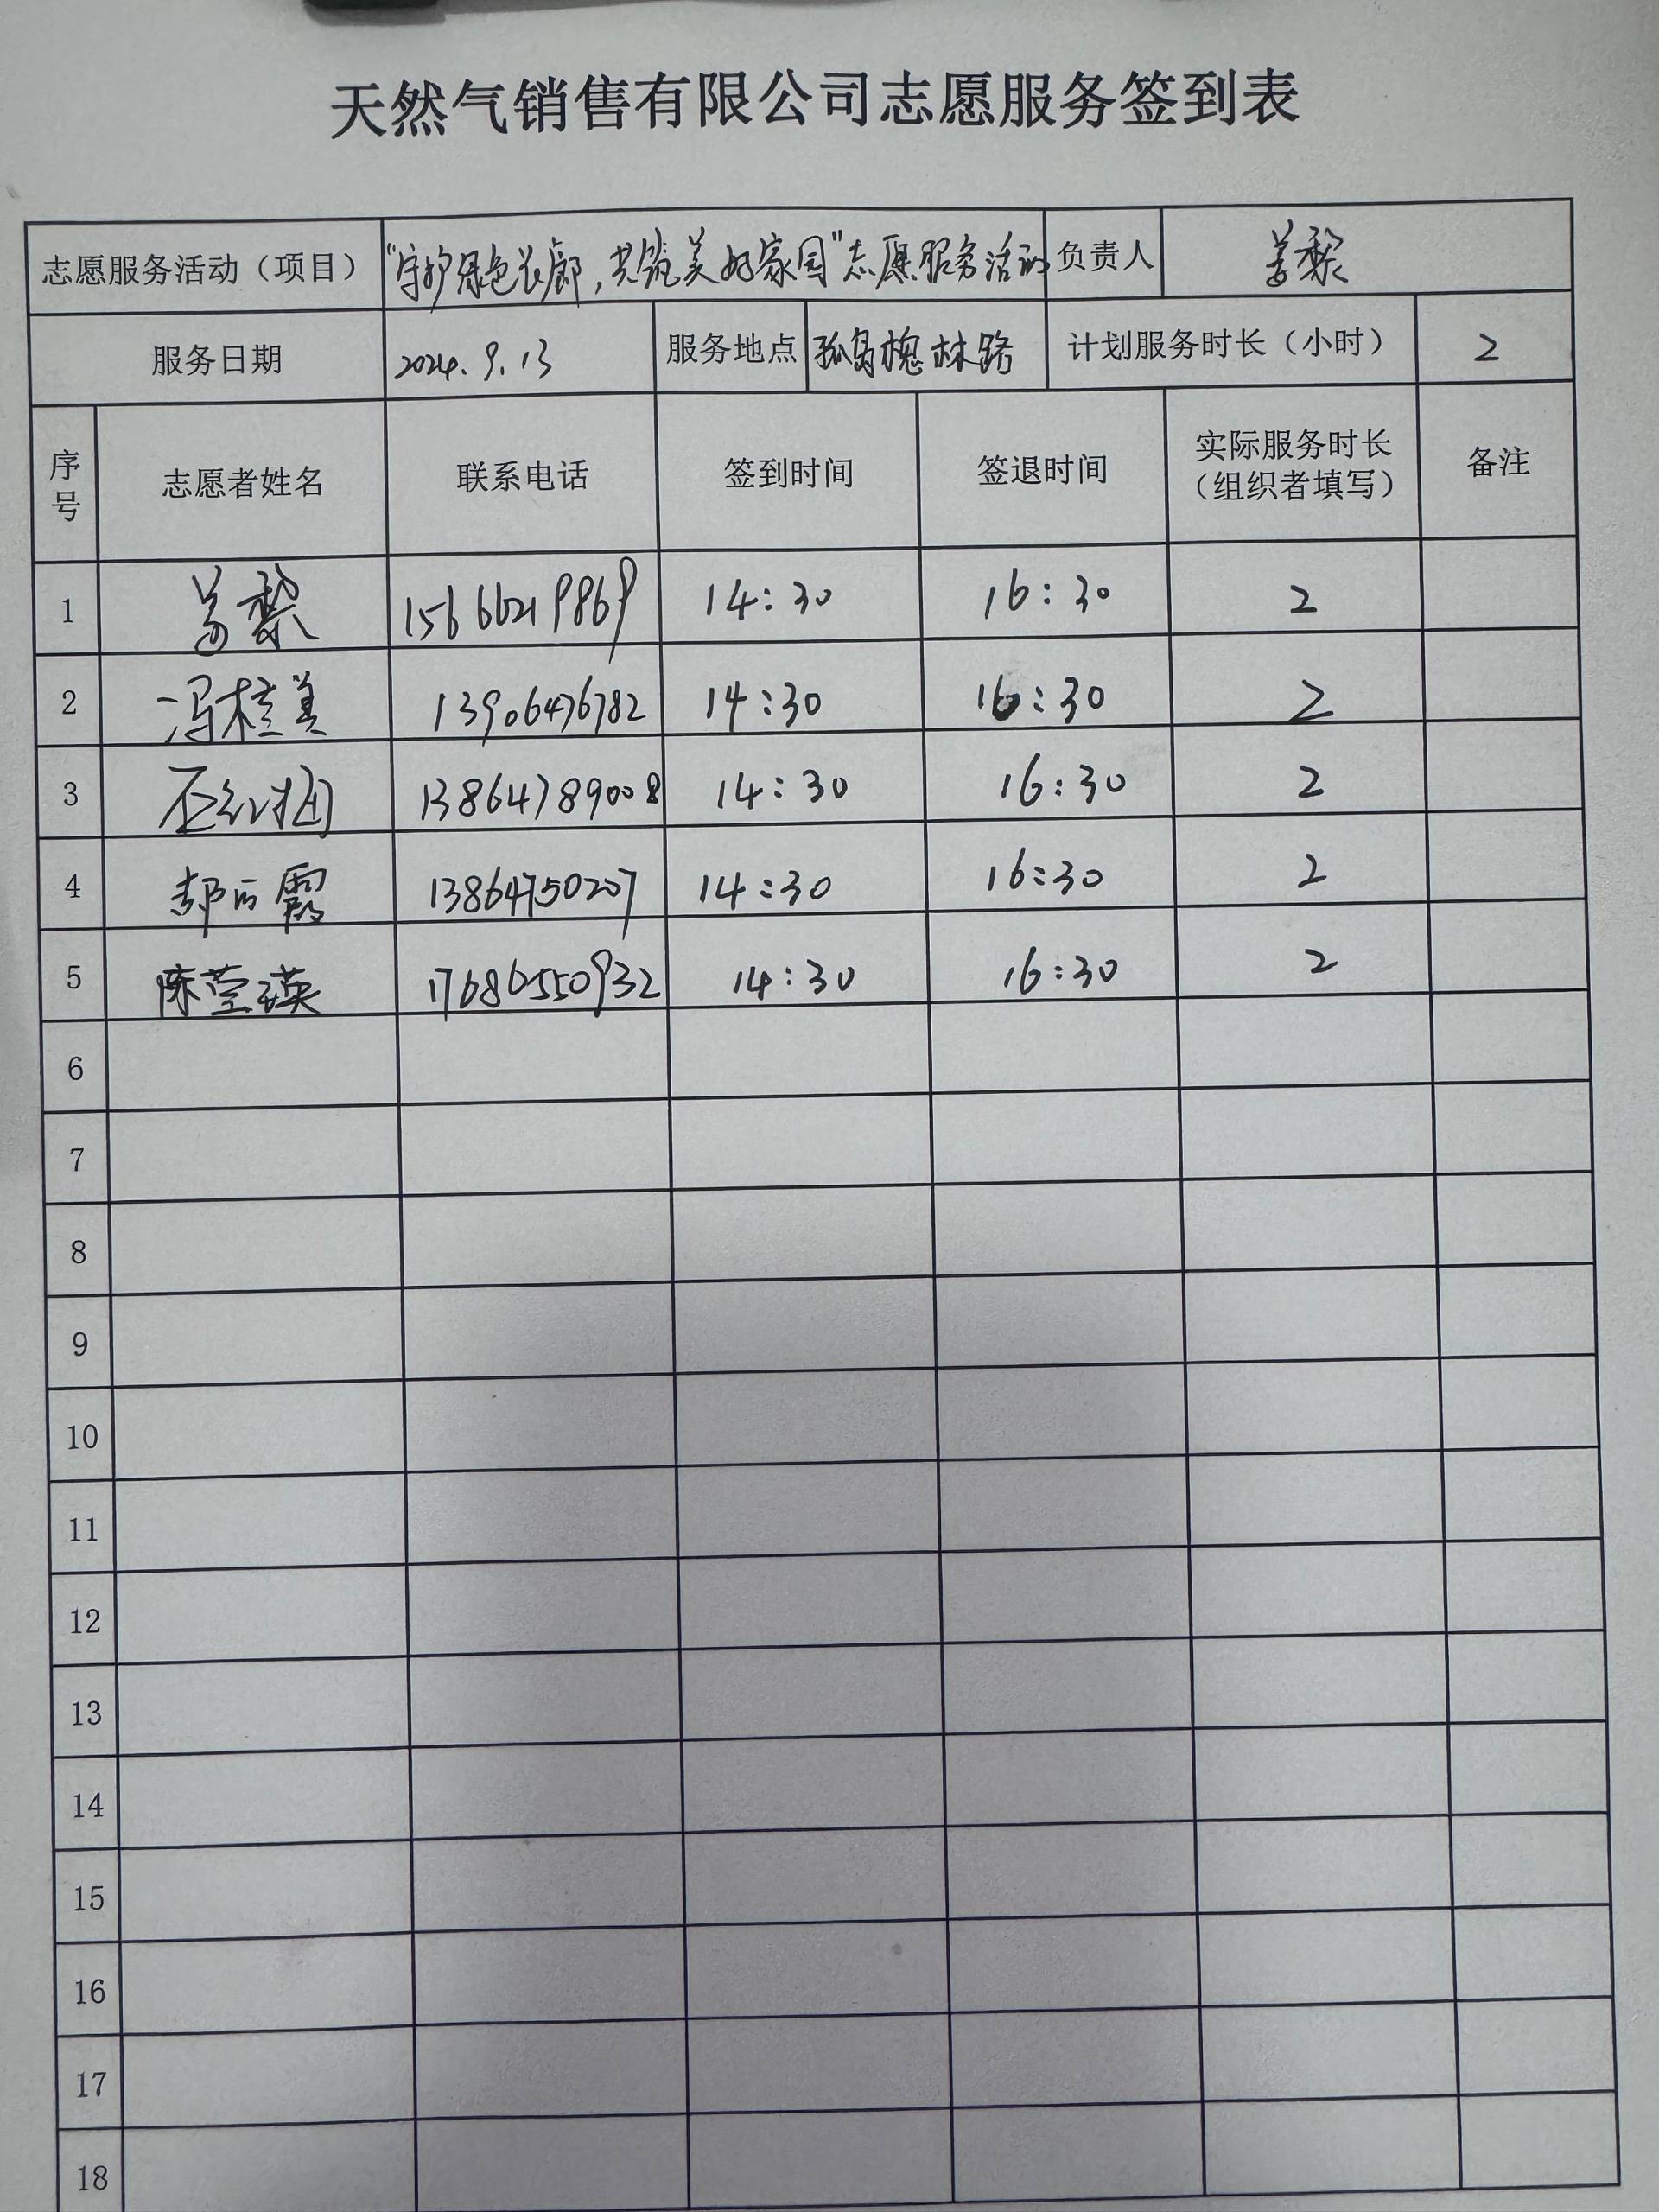 天然气销售有限公司志愿服务签到表
志愿服务活动（项目） "守护绿色长廊，共筑美好家园"志愿服务活动 负责人 姜黎
服务日期 2024.9.13 服务地点 孤岛槐林路 计划服务时长（小时） 2
序号 志愿者姓名 联系电话 签到时间 签退时间 实际服务时长（组织者填写） 备注
1 姜黎 15666219869 14:30 16:30 2
2 冯桂美 13906476782 14:30 16:30 2
3 13864789008 14:30 16:30 2
4 霞 13864750207 14:30 16:30 2
5 陈莹瑛 17686550932 14:30 16:30 2
6
7
8
9
10
11
12
13
14
15
16
17
18